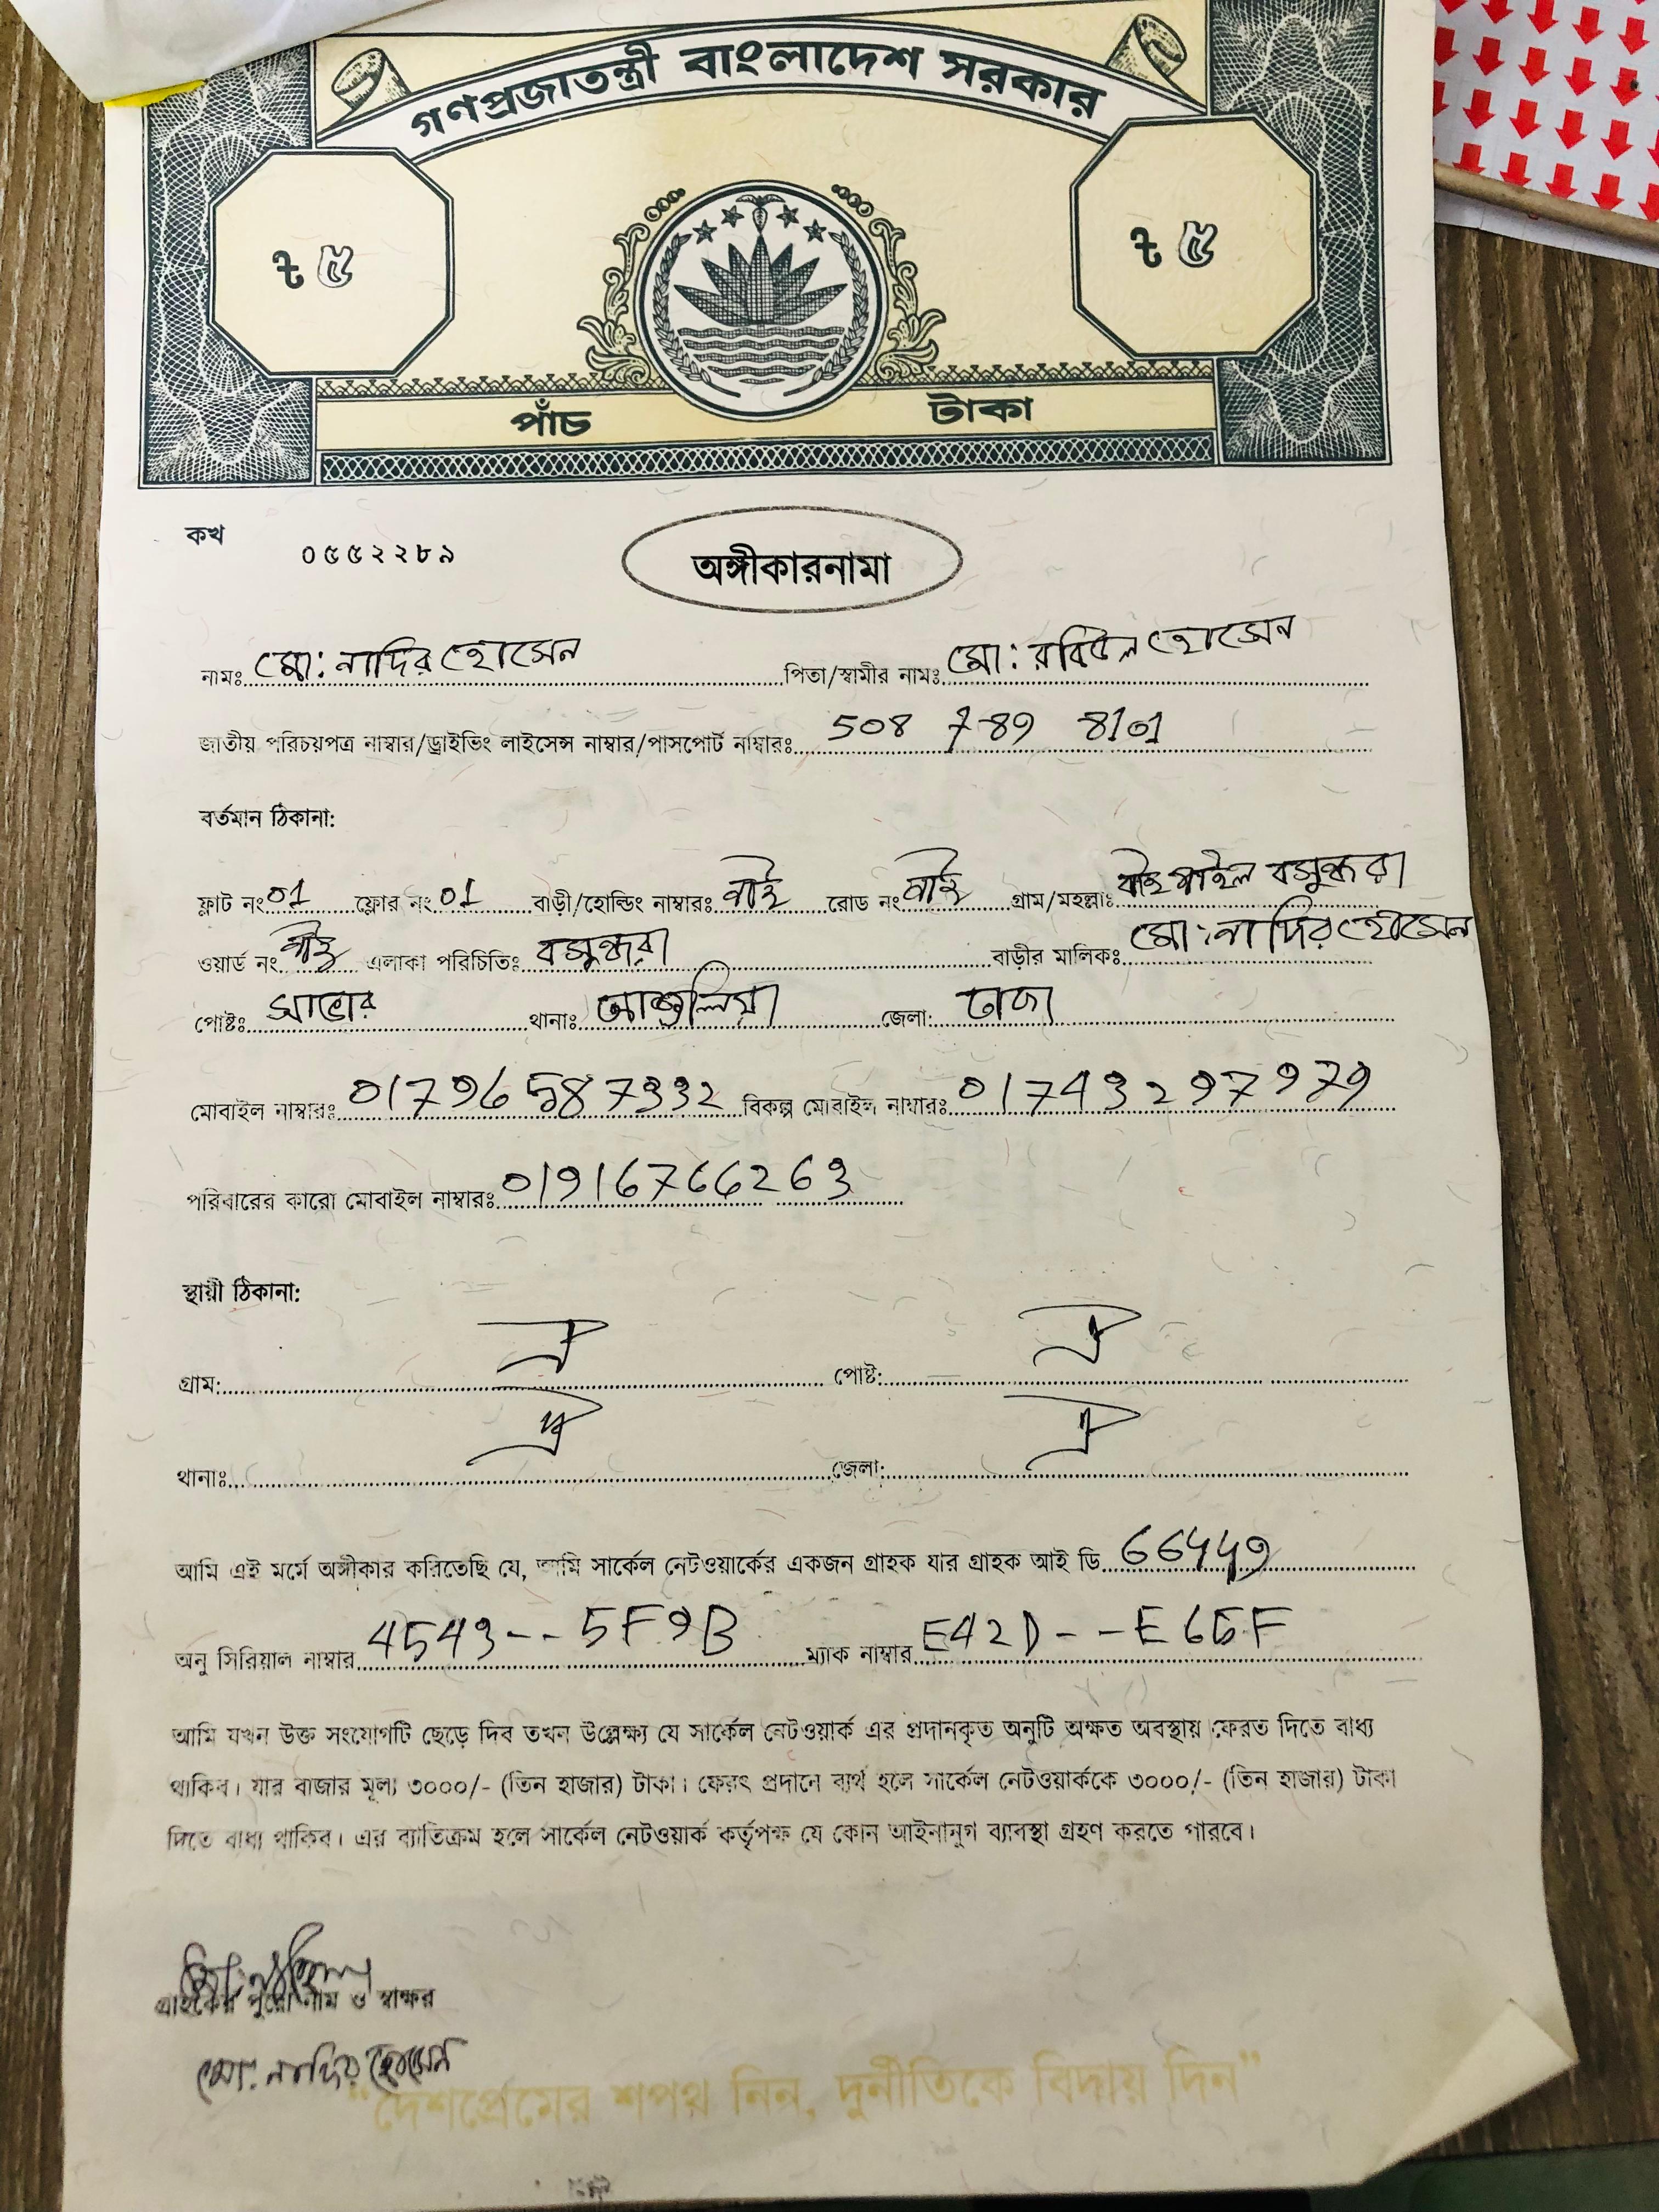 গণপ্রজাতন্ত্রী বাংলাদেশ সরকার
৳ ৫ ৳ ৫
পাঁচ টাকা
কখ ০৫৫২২৮৯
অঙ্গীকারনামা
নামঃ মো: নাদির হোসেন পিতা/স্বামীর নামঃ মো: রবিউল হোসেন
জাতীয় পরিচয়পত্র নাম্বার/ড্রাইভিং লাইসেন্স নাম্বার/পাসপোর্ট নাম্বারঃ 508 789 8101
বর্তমান ঠিকানা:
ফ্লাট নং 01 ফ্লোর নং 01 বাড়ী/হোল্ডিং নাম্বারঃ নাই রোড নং নাই গ্রাম/মহল্লাঃ বাইপাইল বসুন্ধরা
ওয়ার্ড নং নাই এলাকা পরিচিতিঃ বসুন্ধরা বাড়ীর মালিকঃ মো: নাদির হোসেন
পোষ্টঃ সাভার থানাঃ আশুলিয়া জেলা: ঢাকা
মোবাইল নাম্বারঃ 01796587332 বিকল্প মোবাইল নাম্বারঃ 01743297979
পরিবারের কারো মোবাইল নাম্বারঃ 01916766263
স্থায়ী ঠিকানা:
গ্রাম: ঐ পোষ্ট: ঐ
থানাঃ ঐ জেলা: ঐ
আমি এই মর্মে অঙ্গীকার করিতেছি যে, আমি সার্কেল নেটওয়ার্কের একজন গ্রাহক যার গ্রাহক আই ডি 66449
অনু সিরিয়াল নাম্বার 4543-- 5F9B ম্যাক নাম্বার E42D--E65F
আমি যখন উক্ত সংযোগটি ছেড়ে দিব তখন উল্লেক্ষ্য যে সার্কেল নেটওয়ার্ক এর প্রদানকৃত অনুটি অক্ষত অবস্থায় ফেরত দিতে বাধ্য
থাকিব। যার বাজার মূল্য ৩০০০/- (তিন হাজার) টাকা। ফেরৎ প্রদানে ব্যর্থ হলে সার্কেল নেটওয়ার্ককে ৩০০০/- (তিন হাজার) টাকা
দিতে বাধ্য থাকিব। এর ব্যতিক্রম হলে সার্কেল নেটওয়ার্ক কর্তৃপক্ষ যে কোন আইনানুগ ব্যাবস্থা গ্রহণ করতে পারবে।
গ্রাহকের পুরো নাম ও স্বাক্ষর
মো: নাদির হোসেন
“দেশপ্রেমের শপথ নিন, দুর্নীতিকে বিদায় দিন”